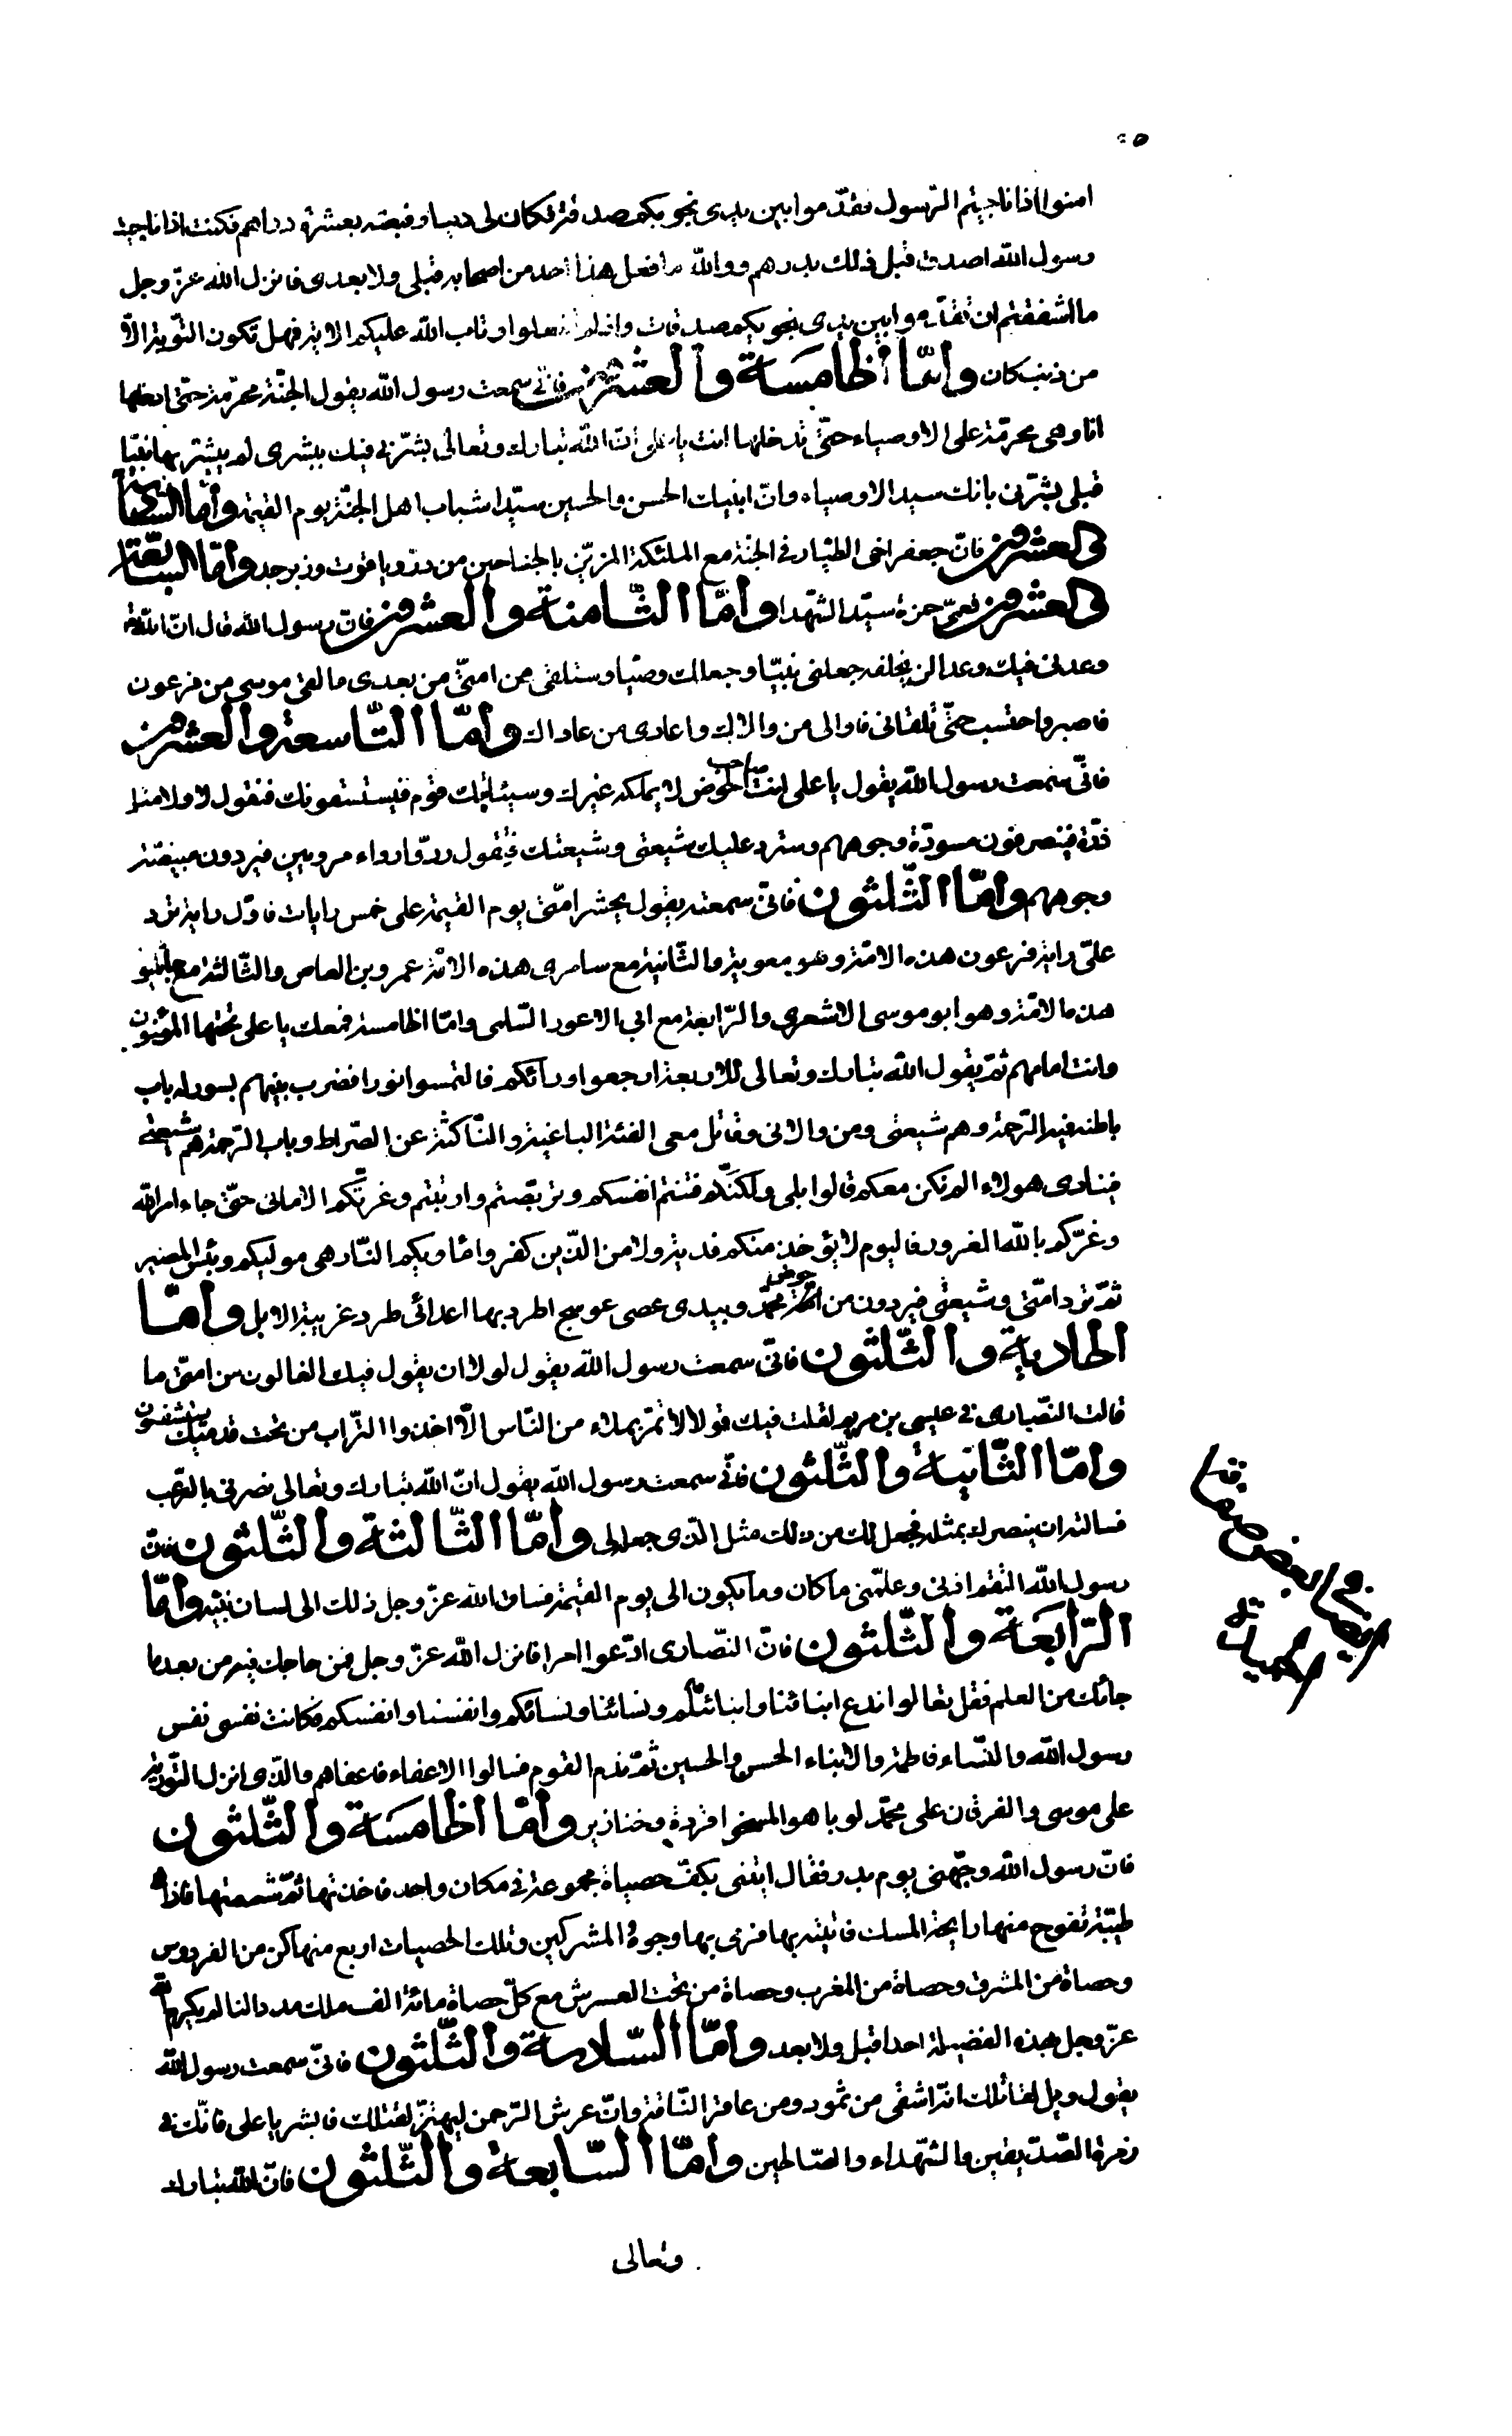 امنوا اذا ناجيتم الرّسول فقدّموا بين يدى نجويكم صدقة فكان لى دينار فبعته بعشرة دراهم فكنت اذا ناجيت
رسول الله اصدق قبل ذلك بدرهم ووالله ما فعل هذا احد من اصحابه قبلى ولا بعدى فانزل الله عزّ وجل
ءاشفقتم ان تقدّموا بين يدى نجويكم صدقات واذ لم تفعلوا وتاب الله عليكم الاية فهل تكون التّوبة الّا
من ذنب كان وامّا الخامسة والعشرون فانّى سمعت رسول الله يقول الجنّة محرّمة حتّى ادخلها
انا وهى محرّمة على الاوصياء حتّى تدخلها انت يا على انّ الله تبارك وتعالى بشّرنى فيك ببشرى لم يبشّر بها نبيّا
قبلى بشّرنى بانك سيد الاوصياء وانّ ابنيك الحسن والحسين سيّدا شباب اهل الجنّة يوم القيمة وامّا السّادسة
والعشرون فانّ جعفر اخى الطيّار فى الجنة مع الملئكة المزيّن بالجناحين من درّ وياقوت وزبرجد وامّا السّابعة
والعشرون فعمّى حمزة سيّد الشّهدا وامّا الثّامنة والعشرون فانّ رسول الله قال انّ الله
وعدنى فيك وعدا لن يخلفه جعلنى نبيّا وجعلك وصيّا وستلقى من امتّى من بعدى ما لقى موسى من فرعون
فاصبر واحتسب حتّى تلقانى فاوالى من والاك واعادى من عاداك وامّا التّاسعة والعشرون
فانّى سمعت رسول الله يقول يا على انت صاحب الحوض لا يملكه غيرك وسيئاتيك قوم فيستسقونك فتقول لا ولا مثل
ذرّة فينصرفون مسودّة وجوههم وسترد عليك شيعتى وشيعتك فتقول ردّوا رواء مرويين فيردون مبيضّة
وجوههم وامّا الثّلثون فانّى سمعته يقول يحشر امّتى يوم القيمة على خمس رايات فاوّل راية ترد
علىّ راية فرعون هذه الامّة وهو معوية والثّانية مع سامرى هذه الامّة عمرو بن العاص والثّالثة مع جاثليق
هذه الامّة وهو ابو موسى الاشعرى والرّابعة مع ابى الاعور السّلمى وامّا الخامسة فمعك يا على تحتها المؤمنون
وانت امامهم ثمّ يقول الله تبارك وتعالى للاربعة ارجعوا ورائكم فالتمسوا نورا فضرب بينهم بسور له باب
باطنه فيه الرّحمة وهم شيعتى ومن والانى وقاتل معى الفئة الباغية والنّاكثة عن الصّراط وباب الرّحمة هم شيعتى
فينادى هولاء الم نكن معكم قالوا بلى ولكنّكم فتنتم انفسكم وتربّصتم وارتبتم وغرّتكم الامانى حتّى جاء امر الله
وغرّكم بالله الغرور فاليوم لا يؤخذ منكم فدية ولا من الّذين كفروا ماويكم النّار هى موليكم وبئس المصير
ثمّ ترد امّتى وشيعتى فيردون من حوض محمّد وبيدى عصى عوسج اطرد بها اعدائى طرد غريبة الابل وامّا
الحادية والثّلثون فانّى سمعت رسول الله يقول لولا ان يقول فيك الغالون من امتّى ما
قالت النّصارى فى عيسى بن مريم لقلت فيك قولا لا تمرّ بملاء من النّاس الّا اخذوا التّراب من تحت قدميك يستشفون
وامّا الثّانية والثّلثون فانّى سمعت رسول الله يقول انّ الله تبارك وتعالى نصرنى بالرّعب
فسالته ان ينصرك بمثله فجعل لك من ذلك مثل الّذى جعل لى وامّا الثّالثة والثّلثون فانّ
رسول الله التقم اذنى وعلّمنى ما كان وما يكون الى يوم القيمة فساق الله عزّ وجل ذلك الى لسان نبيّه وامّا
الرّابعة والثّلثون فانّ النّصارى ادّعوا امرا فانزل الله عزّ وجل فمن حاجك فيه من بعد ما
جائك من العلم فقل تعالوا ندع ابنائنا وابنائكم ونسائنا ونسائكم وانفسنا وانفسكم فكانت نفسى نفس
رسول الله والنّساء فاطمة والابناء الحسن والحسين ثمّ ندم القوم فسالوا الاعفاء فاعفاهم والّذى انزل التّورية
على موسى والفرقان على محمّد لو باهلوا لمسخوا قردة وخنازير وامّا الخامسة والثّلثون
فانّ رسول الله وجّهنى يوم بدر فقال ايتنى بكفّ حصياة مجموعة فى مكان واحد فاخذتها ثمّ شممتها فاذا هى
طيّبة تفوح منها رايحة المسك فاتيته بها فرمى بها وجوه المشركين وتلك الحصيات اربع منها كن من الفردوس
وحصاة من المشرق وحصاة من المغرب وحصاة من تحت العرش مع كلّ حصاة مائة الف ملك مددا لنا لم يكرم الله
عزّ وجل بهذه الفضيلة احدا قبل ولا بعد وامّا السّادسة والثّلثون فانّى سمعت رسول الله
يقول ويل لقاتلك انّه اشقى من ثمود ومن عاقر النّاقة وانّ عرش الرّحمن ليهتزّ لقتلك فابشر يا على فانّك فى
زمرة الصّدّيقين والشّهداء والصّالحين وامّا السّابعة والثّلثون فانّ الله تبارك
وتعالى